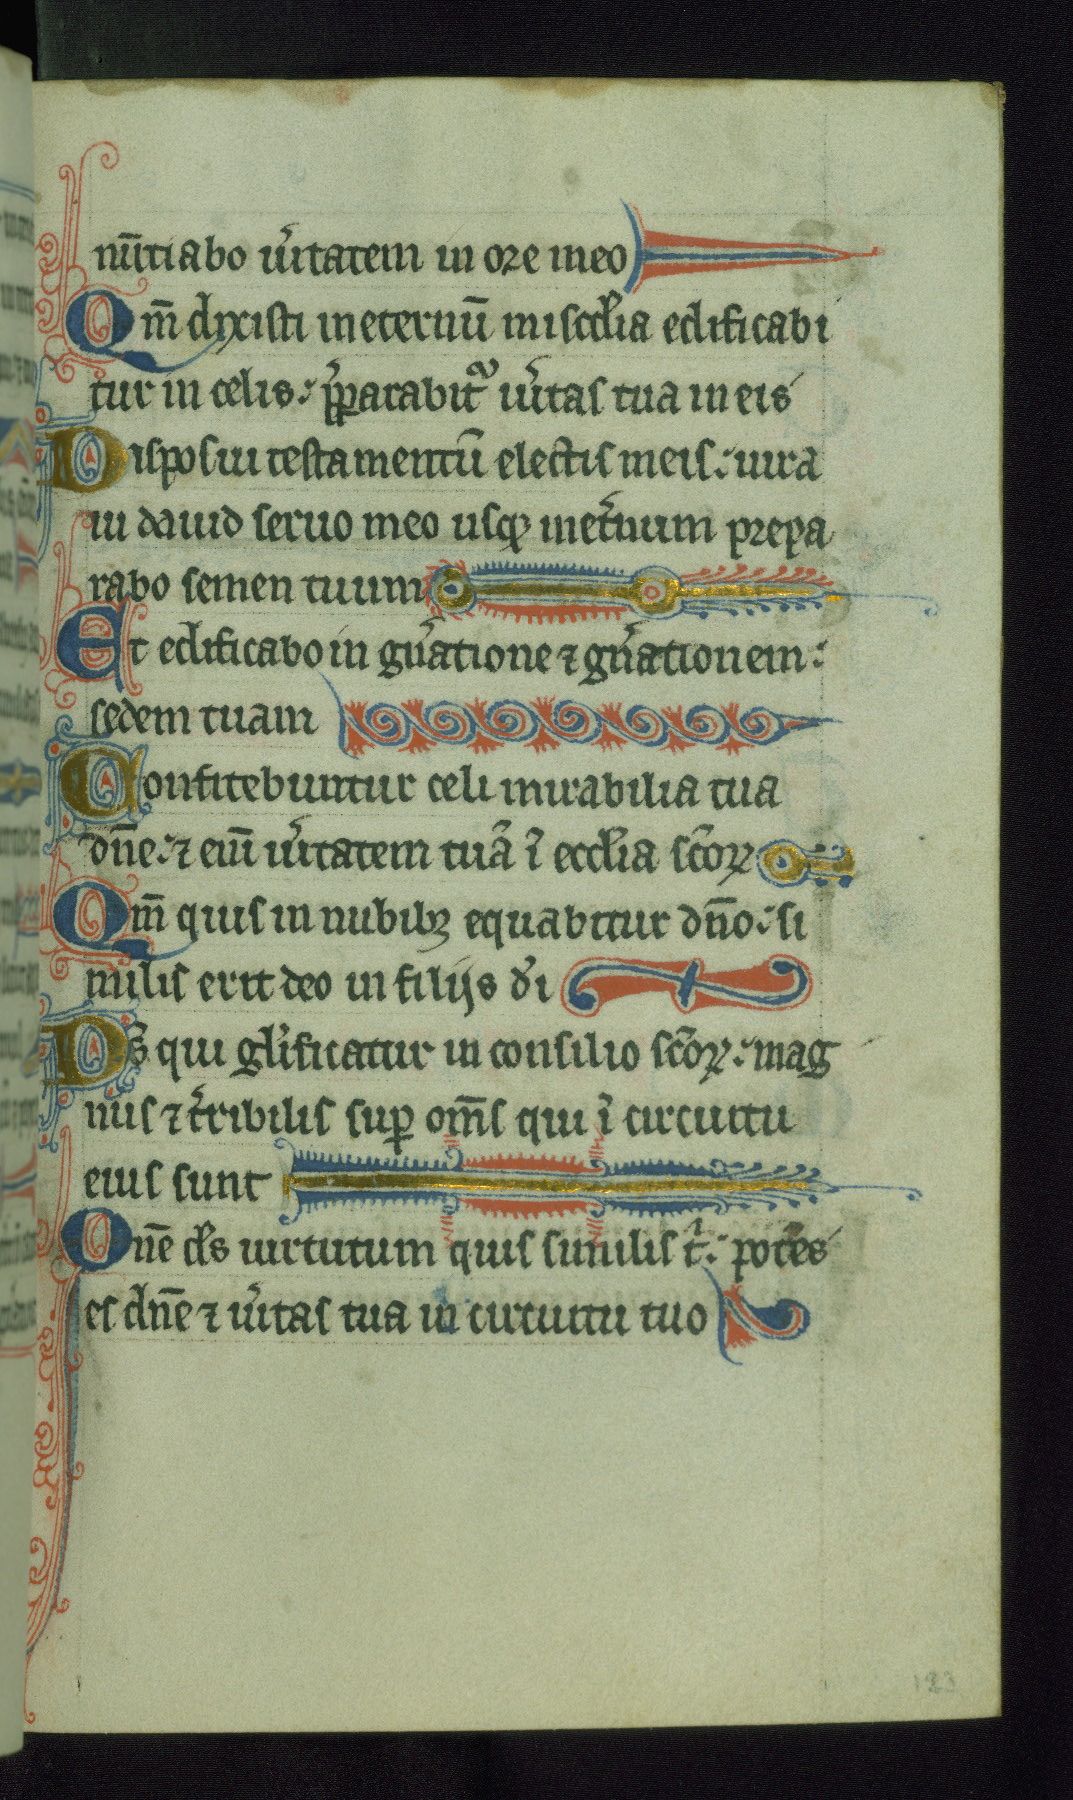 nūtiabo ūitatem in ore meo
Qm̄ dixisti in eternū misc̄dia edificabi
tur in celis: p̄parabit᷑ ūitas tua in eis
Disposui testamentū electis meis: iura
ui dauid seruo meo usq᷑ in et̄num prepa
rabo semen tuum
Et edificabo in gn̄atione ⁊ gn̄ationem:
sedem tuam
Confitebuntur celi mirabilia tua
dn̄e: ⁊ eni᷑ ūitatem tuā ī eccl̄ia sc̄oꝝ
Qm̄ quis in nubibꝫ equabitur dn̄o: si
milis erit deo in filijs d̄i
Ds̄ qui gl̄ificatur in consilio sc̄oꝝ: mag
nus ⁊ t̄ribilis suꝑ om̄s qui ī circuitu
eius sunt
Dn̄e ds̄ uirtutum quis similis t̄: potēs
es dn̄e ⁊ ūitas tua in circuitu tuo
123